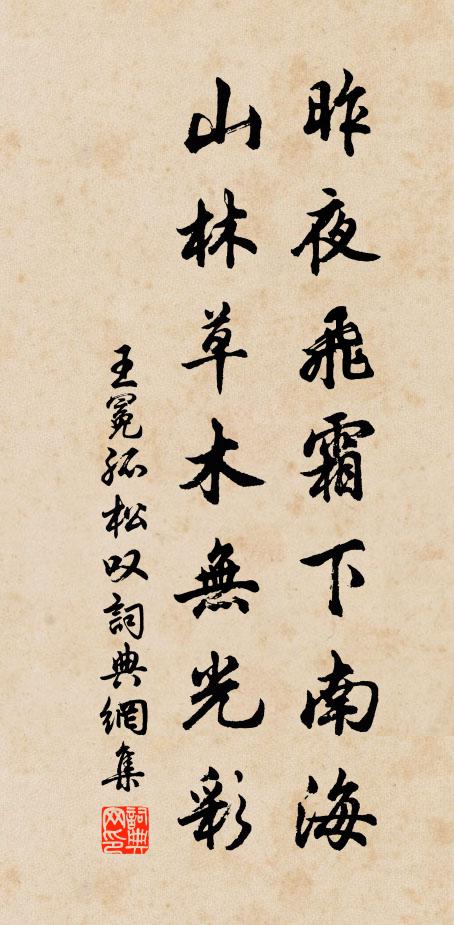 昨夜飛霜下南海
山林草木無光彩
王冕孤松叹詞典網集
詞典网印